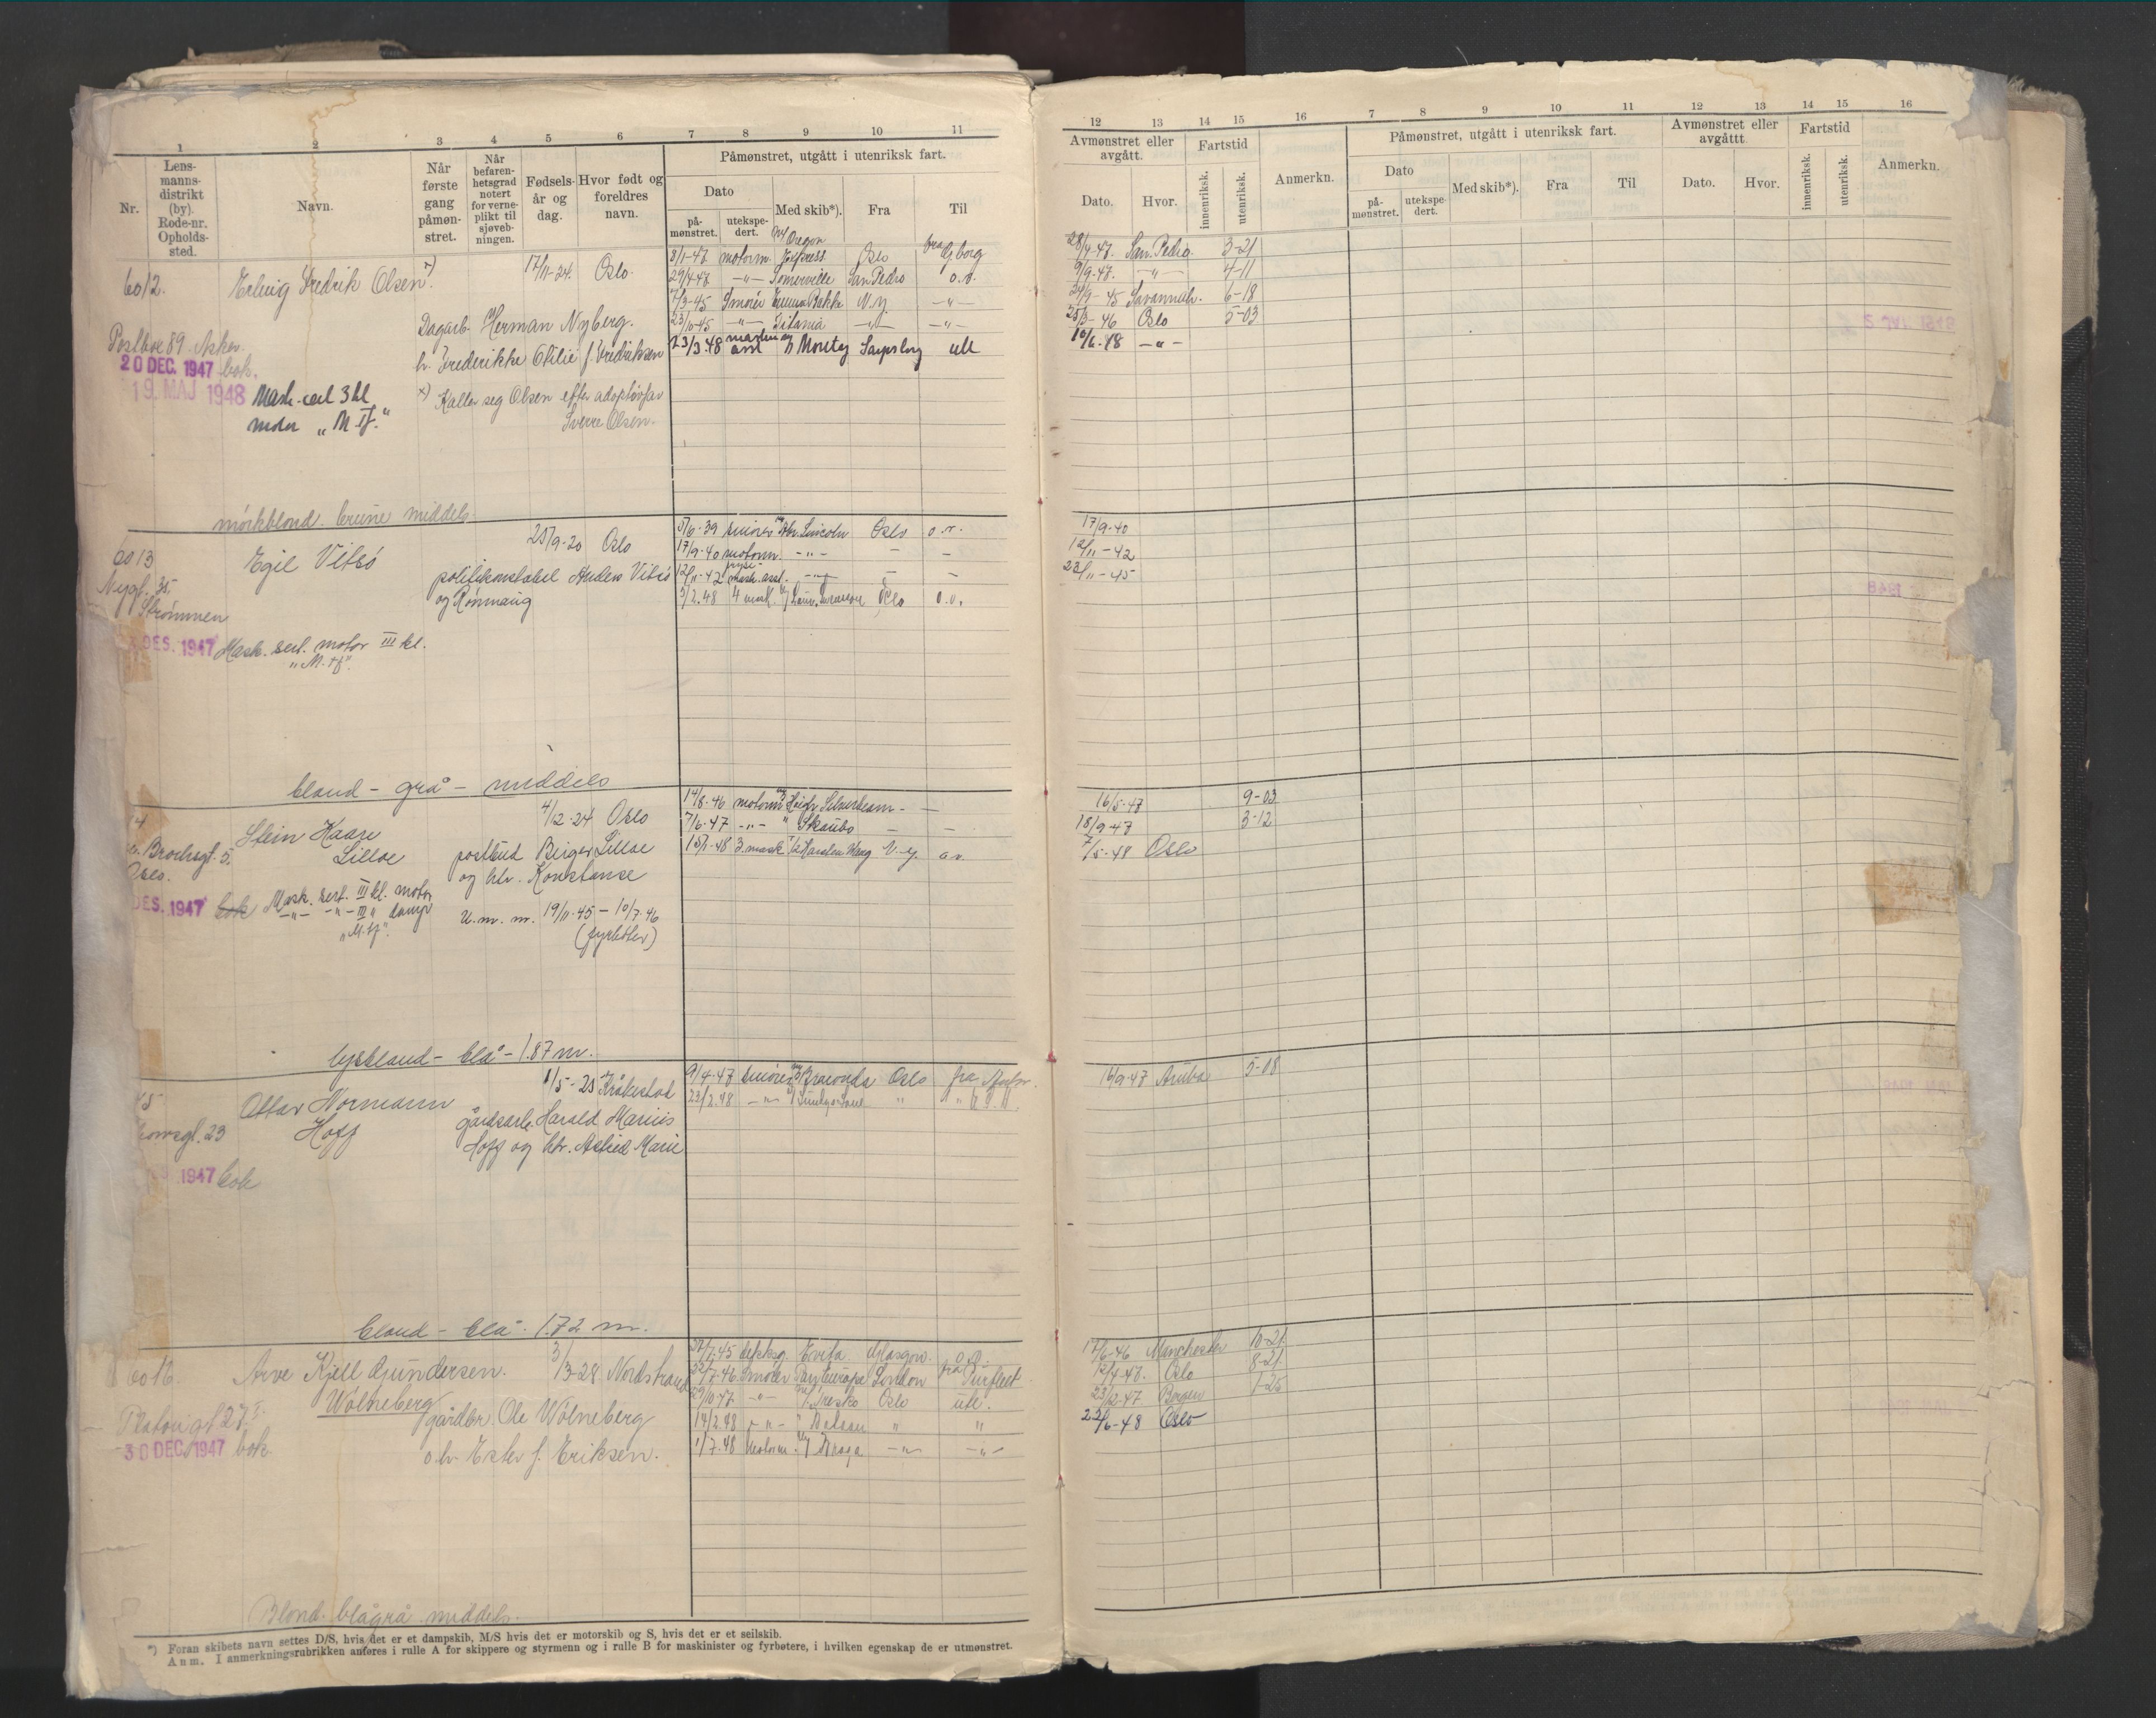 1 2 3 4 5 6 7 8 9 10 11
Nr.
Lens-
manns-
distrikt
(by).
Rode-nr.
Opholds-
sted.
Navn.
Når
første
gang
påmøn-
stret.
Når
befaren-
hetsgrad
notert
for verne-
plikt til
sjøveb-
ningen.
Fødsels-
år og
dag.
Hvor født og
foreldres
navn.
Påmønstret, utgått i utenriksk fart.
Dato
på-
mønstret.
utekspe-
dert.
Med skib*).
Fra
Til
12 13 14 15 16 7 8 9 10 11 12 13 14 15 16
Avmønstret eller
avgått.
Dato.
Hvor.
Fartstid
innenriksk.
utenriksk.
Anmerkn.
Påmønstret, utgått i utenriksk fart.
Dato
på-
mønstret.
utekspe-
dert.
Med skib*).
Fra
Til
Avmønstret eller
avgåttt
Dato.
Hvor.
Fartstid
innenriksk.
utenriksk.
Anmerkn.
6012. Fredrik Olsen. x) 17/11-24. Oslo.
Dagarb. Herman Nyberg.
h. Frederikke Otilie f. Fredriksen
Postbox 89. Asker
20 DEC. 1947 bok.
19. MAJ 1948 Mask. cert 3 kl
under "M. tf."
x) Kaller seg Olsen efter adoptivfar
Sverre Olsen.
8/1-47 motorm. M/ Oregon Express Oslo fra Gborg
29/4-47 -"- Somerville San Pedro o.v.
7/3-45 Smører Emma Bakke N.y. -"-
23/10-45 -"- Titania -"- -"-
23/3 48 maskin asst Montey Sarpsborg utl
28/4-47. San Pedro. 3-21
9/9-47. -"- 4-11
24/9-45 Savannah. 6-18
25/3-46 Oslo 5-03
10/6-48 -"-
mörkblond. brune middels
6013 Egil Vitsö 25/9-20 Oslo
Nygt. 35.
Strømmen
politikonstabel Anders Vitsö
og Rönnaug
DES. 1947 Mask. sert. motor III kl.
"M. tf".
5/6-39 smører Abr. Lincoln Oslo o.v.
17/9-40 motorm. -"- - -
12/11-42 fryse-mask. asst. -"- - -
3/2.48 4 mask. Oslo o.v.
17/9-40
12/11-42
23/11-45
bland - grå - middels
4 Stein Kaare
Lilloe
4/12-24 Oslo
Brochsgt. 5.
Oslo.
postbud Birger Lilloe
og htr. Konstanse
DES. 1947 bok Mask. sert. III kl. motor
-"- -"- III " damp
"M. tf".
U.m.m. 19/11-45 - 10/7-46
(fyrböter)
14/8-46 motorm Høegh Silverbeam - -
7/6-47 -"- " Skaubo - -
15/1-48 3. mask Karsten Wang N.y. o.v.
16/5-47 9-03
18/9-47 3-12
7/5-48 Oslo
lysbland - blå - 1.87 m.
5 Ottar Normann
Hoff
1/5-25 Kråkestad
gårdsarb. Harald Marius
Hoff og htr. Astrid Marie
1947 bok
9/4-47 smører Oslo fra
23/2.48 -"- "
16/9-47 Aruba 5-08
bland - blå - 1.72 m.
6016. Arve Kjell Gundersen. 3/3-28 Nordstrand
Wölneberg
Platougt 27 I.
gårdbr. Ole Wölneberg
o.h. Ester f. Eriksen.
30 DEC. 1947 bok
Evita Glasgow. o.v.
Smører London fra Purfleet
-"- Oslo utl.
14/2.48 -"- " Nelson " "
1/7.48 motorm. Braga -"- -"-
Manchester 10-21
Oslo 8-21
23/12-47 Bergen 1-25
22/6-48 Oslo
Blond. blågrå middels.
*) Foran skibets navn settes D/S, hvis det er et dampskib, M/S hvis det er motorskib og S, hvis det er et seilskib.
Anm. I anmerkningsrubrikken anføres i rulle A for skippere og styrmenn og i rulle B for maskinister og fyrbøtere, i hvilken egenskap de er utmønstret.